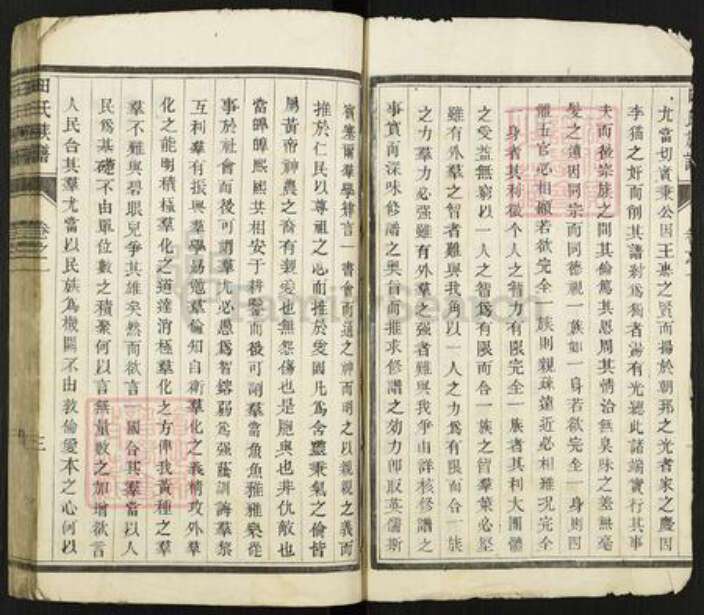 尤當切實秉公因王惠之賢而揚於朝邦之光者家之慶因
李猫之奸而削其譜剩爲獨者湯有光聽此諸端實行其事
夫而後宗族之間其倫篤其恩周其情洽無臭味之差無毫
髮之遠因同宗而同德視一族如一身若欲完全一身則四
體五官必相顧若欲完全一族則親疎遠近必相維況完全
身者其利微個人之智力有限完全一族者其利大團體
之受益無窮以一人之智爲有限而合一族之智羣策必堅
雖有外羣之智者難與我角以一人之力爲有限而合一族
之力羣力必强雖有外羣之强者難與我爭由詳核修譜之
事實而深味修譜之奧旨而推求修譜之効力卽取英儒斯
賓塞爾羣學肄言一書會而通之神而明之以親親之義而
推於仁民以尊祖之心而推於愛國凡爲含靈秉氣之倫皆
屬黃帝神農之裔有親愛也無怨傷也是胞與也非仇敵也
當皥皥熙熙共相安于耕鑿而後可謂羣當魚魚雅雅樂從
事於社會而後可謂羣尤必愚爲智鎔弱爲强蔭訓誨羣黎
互利羣有振興羣學易邀羣倫知自衛羣化之義情攻外羣
化之能明積極羣化之道達消極羣化之方俾我黃種之羣
羣不難與碧眼兒爭其雄矣然而欲言一國合其羣當以人
民爲基礎不由單位數之積聚何以言無量數之加增欲言
人民合其羣尤當以民族爲機關不由敦倫愛本之心何以
田氏族譜
卷之一
三
FamilySearch